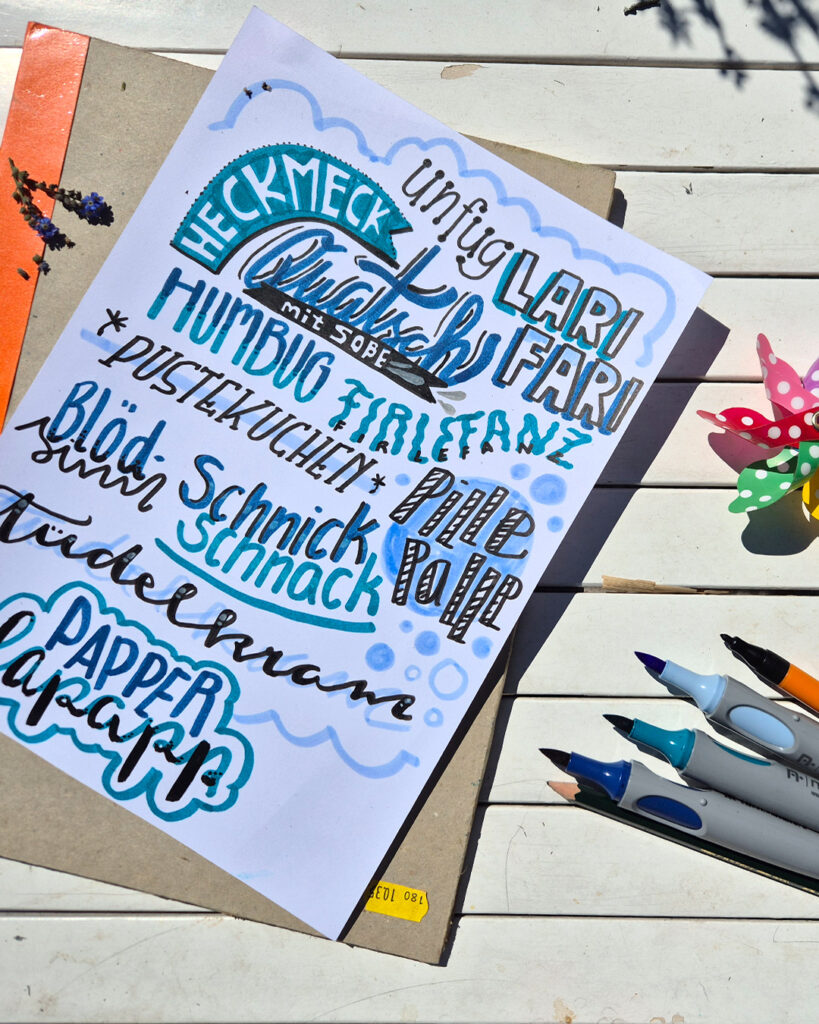 HECKMECK
unfug
Quatsch
mit SOßE
LARI
FARI
HUMBUG
*PUSTEKUCHEN*
FIRLEFANZ
FIRLEFANZ
Blöd-
sinn
Schnick
Schnack
Pille
Palle
tüdelkram
PAPPER
lapapp
180 103